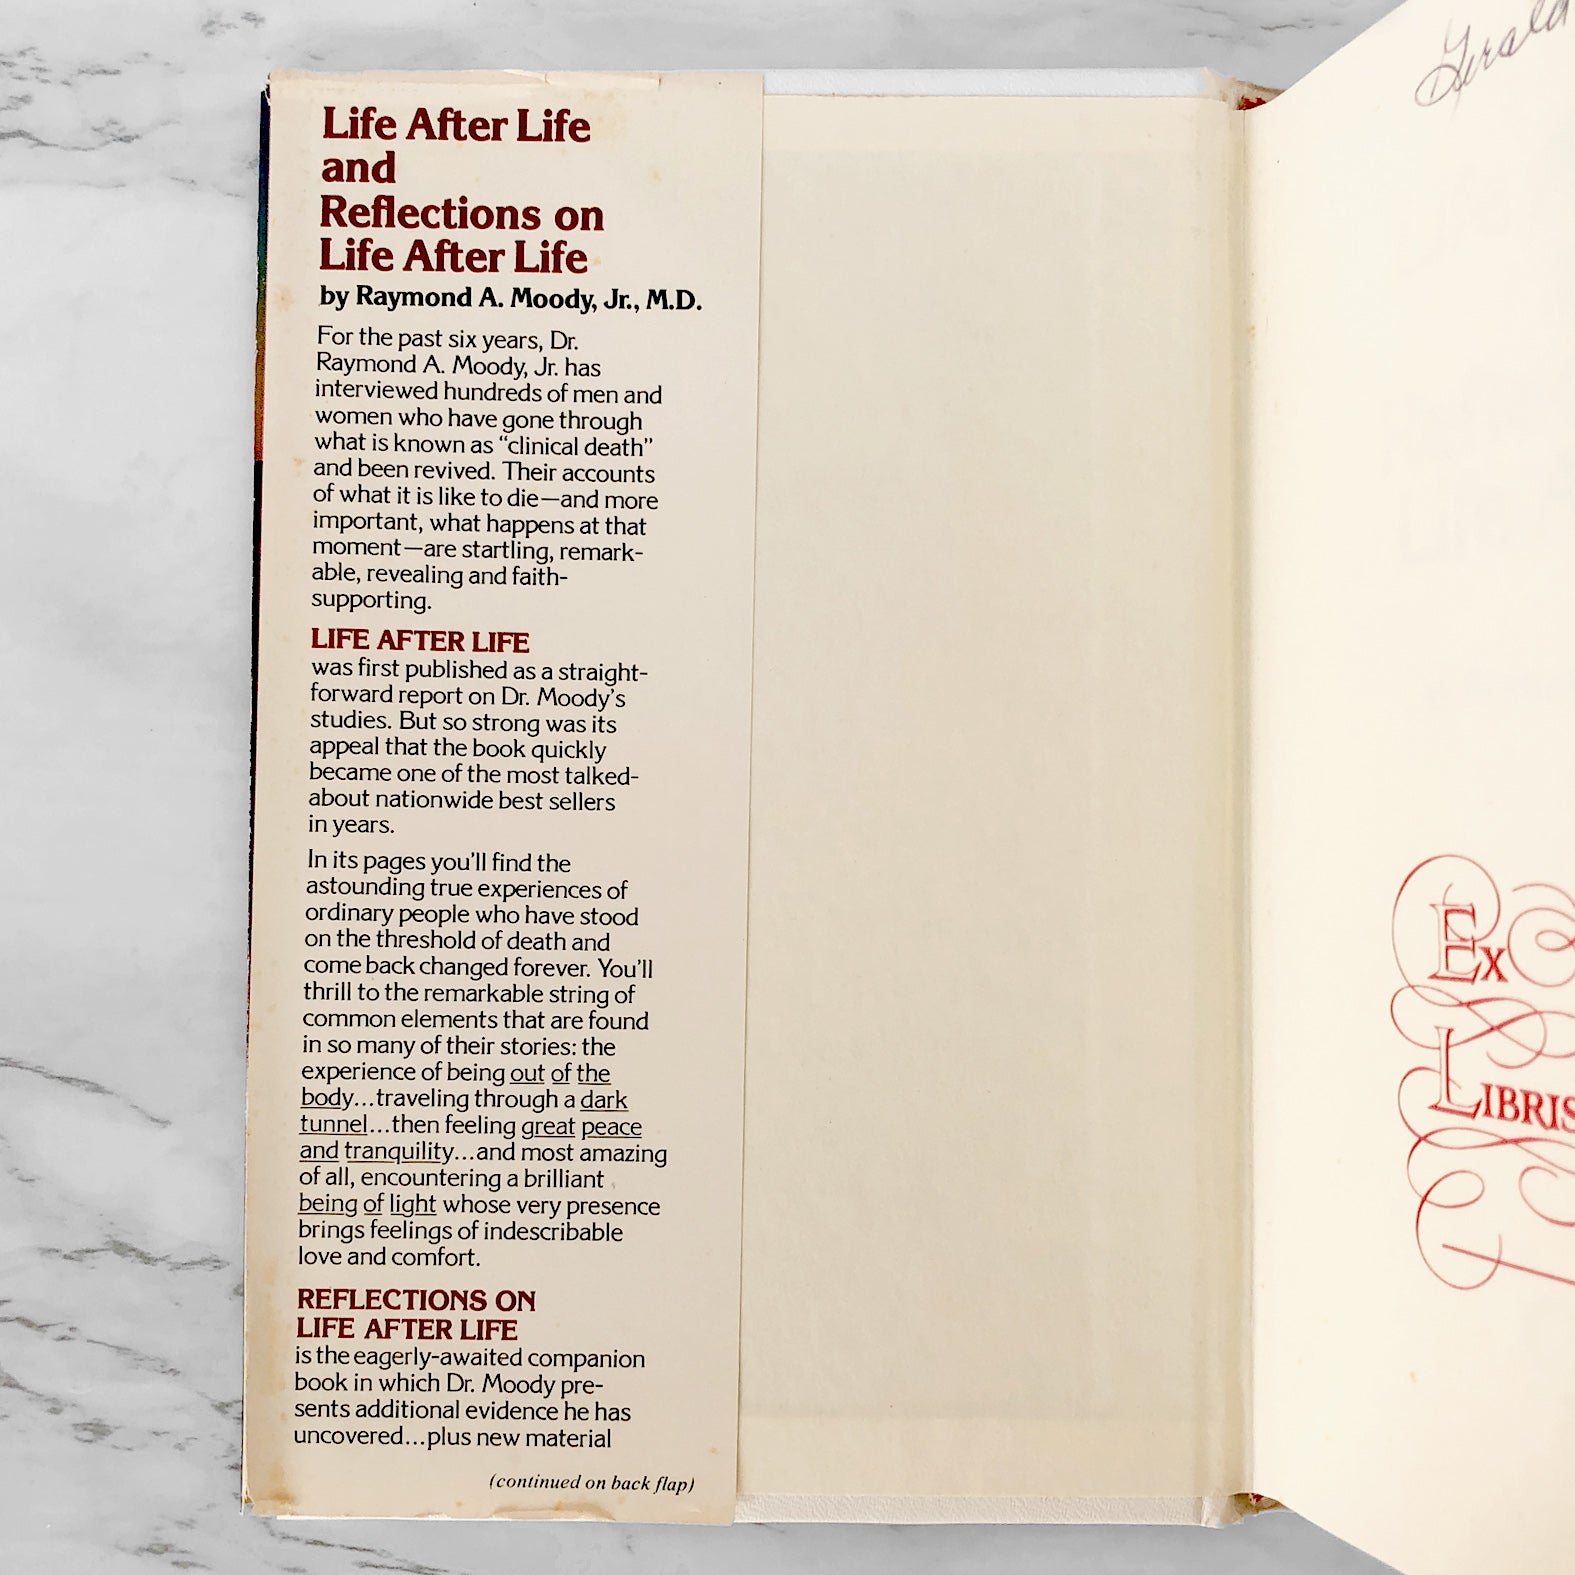 Life After Life
and
Reflections on
Life After Life
by Raymond A. Moody, Jr., M.D.
For the past six years, Dr.
Raymond A. Moody, Jr. has
interviewed hundreds of men and
women who have gone through
what is known as “clinical death”
and been revived. Their accounts
of what it is like to die—and more
important, what happens at that
moment—are startling, remark-
able, revealing and faith-
supporting.
LIFE AFTER LIFE
was first published as a straight-
forward report on Dr. Moody's
studies. But so strong was its
appeal that the book quickly
became one of the most talked-
about nationwide best sellers
in years.
In its pages you'll find the
astounding true experiences of
ordinary people who have stood
on the threshold of death and
come back changed forever. You'll
thrill to the remarkable string of
common elements that are found
in so many of their stories: the
experience of being out of the
body...traveling through a dark
tunnel...then feeling great peace
and tranquility...and most amazing
of all, encountering a brilliant
being of light whose very presence
brings feelings of indescribable
love and comfort.
REFLECTIONS ON
LIFE AFTER LIFE
is the eagerly-awaited companion
book in which Dr. Moody pre-
sents additional evidence he has
uncovered...plus new material
(continued on back flap)
Gerald
EX
LIBRIS